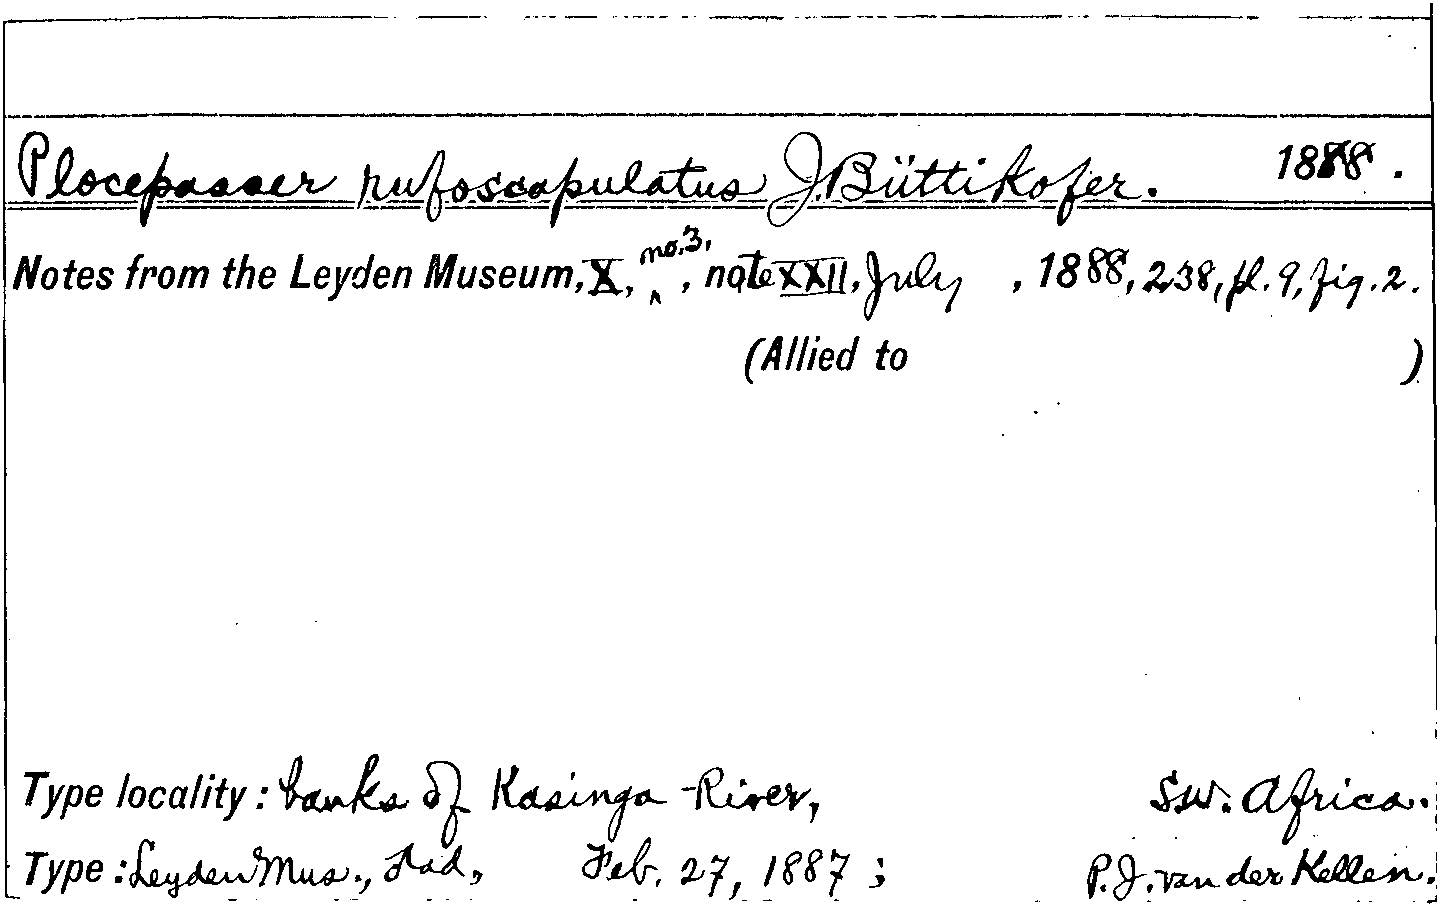 Plocepasser rufoscapulatus J. Büttikofer. 1888.
Notes from the Leyden Museum, X, no. 3, , note XXII, July , 1888, 238, pl. 9, fig. 2.
(Allied to )
Type locality: banks of Kasinga River, SW. Africa.
Type: Leyden Mus., ad, Feb. 27, 1887; P. J. van der Kellen.